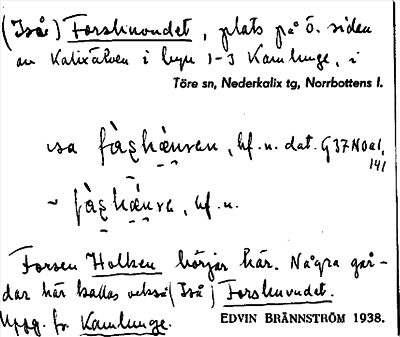 (Iså) Forshuvudet, plats på ö. sidan
av Kalixälven i byn 1-3 Kamlunge, i
Töre sn, Nederkalix tg, Norrbottens l.
hf. n. dat. G37N0a1,
141
hf. n.
Forsen Holken börjar här. Några går-
dar här kallas också (Iså) Forshuvudet.
Uppg. fr Kamlunge. EDVIN BRÄNNSTRÖM 1938.